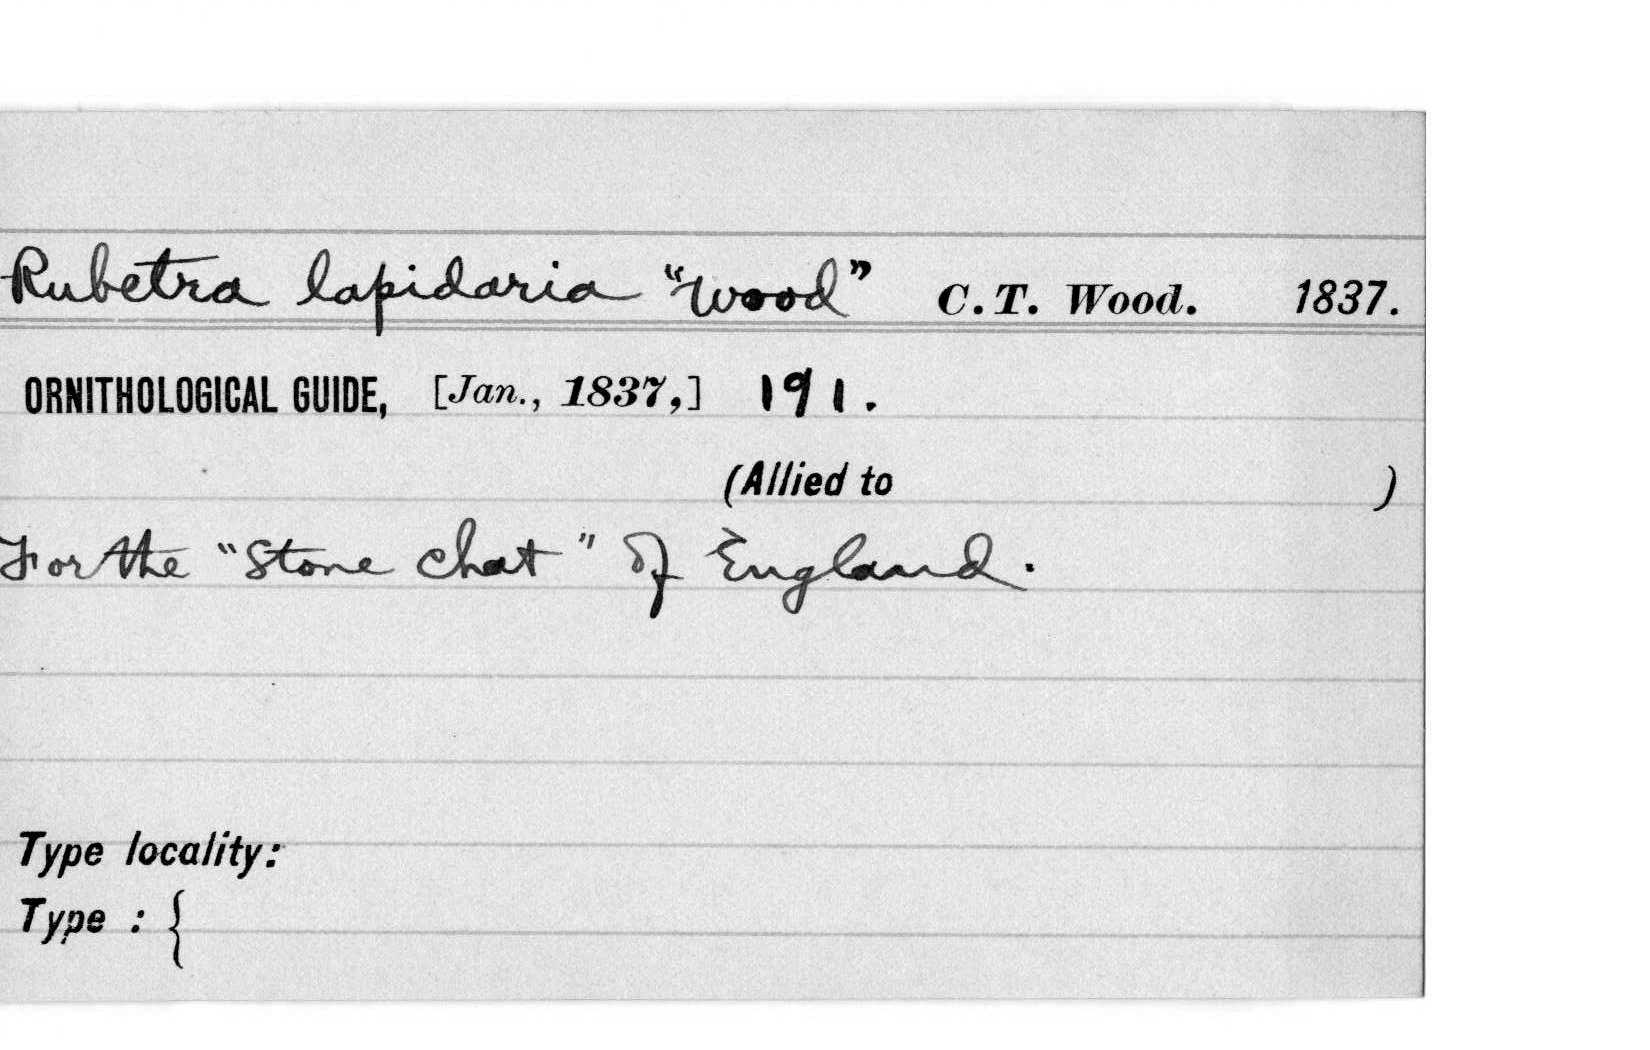 Rubetra lapidaria “Wood” C. T. Wood. 1837.
ORNITHOLOGICAL GUIDE, [Jan., 1837,] 191.
(Allied to )
For the “Stone chat” of England.
Type locality:
Type : {